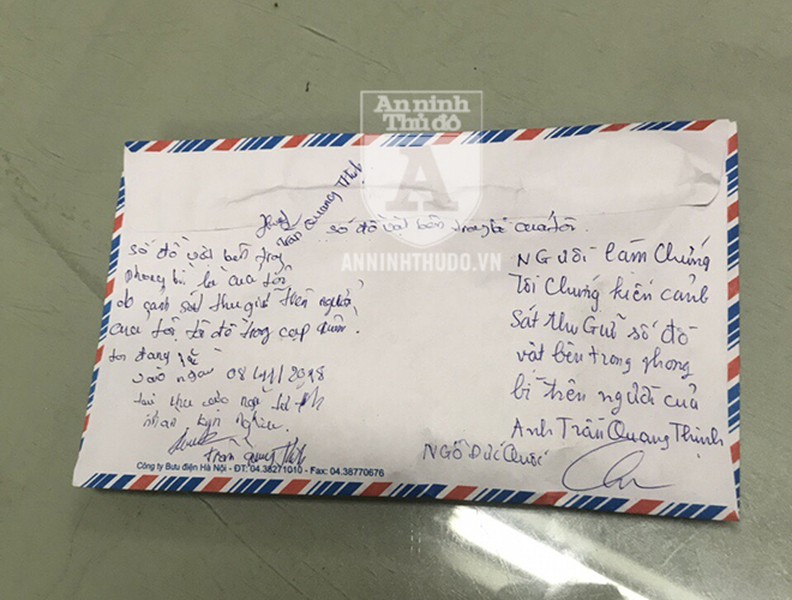 An ninh
Thủ đô
A
ANNINHTHUDO.VN
Trần Quang Thịnh
số đồ vật bên trong bì của tôi.
số đồ vật bên trong
phong bì là của tôi
do cảnh sát thu giữ trên người
của tôi. tôi để trong cạp quần.
vào ngày 08/11/2018
Trần Quang Thịnh
Người làm chứng
Tôi chứng kiến cảnh
sát thu giữ số đồ
vật bên trong phong
bì trên người của
Anh Trần Quang Thịnh
NGÔ Đức
Công ty Bưu điện Hà Nội - ĐT: 04.38271010 - Fax: 04.38770676